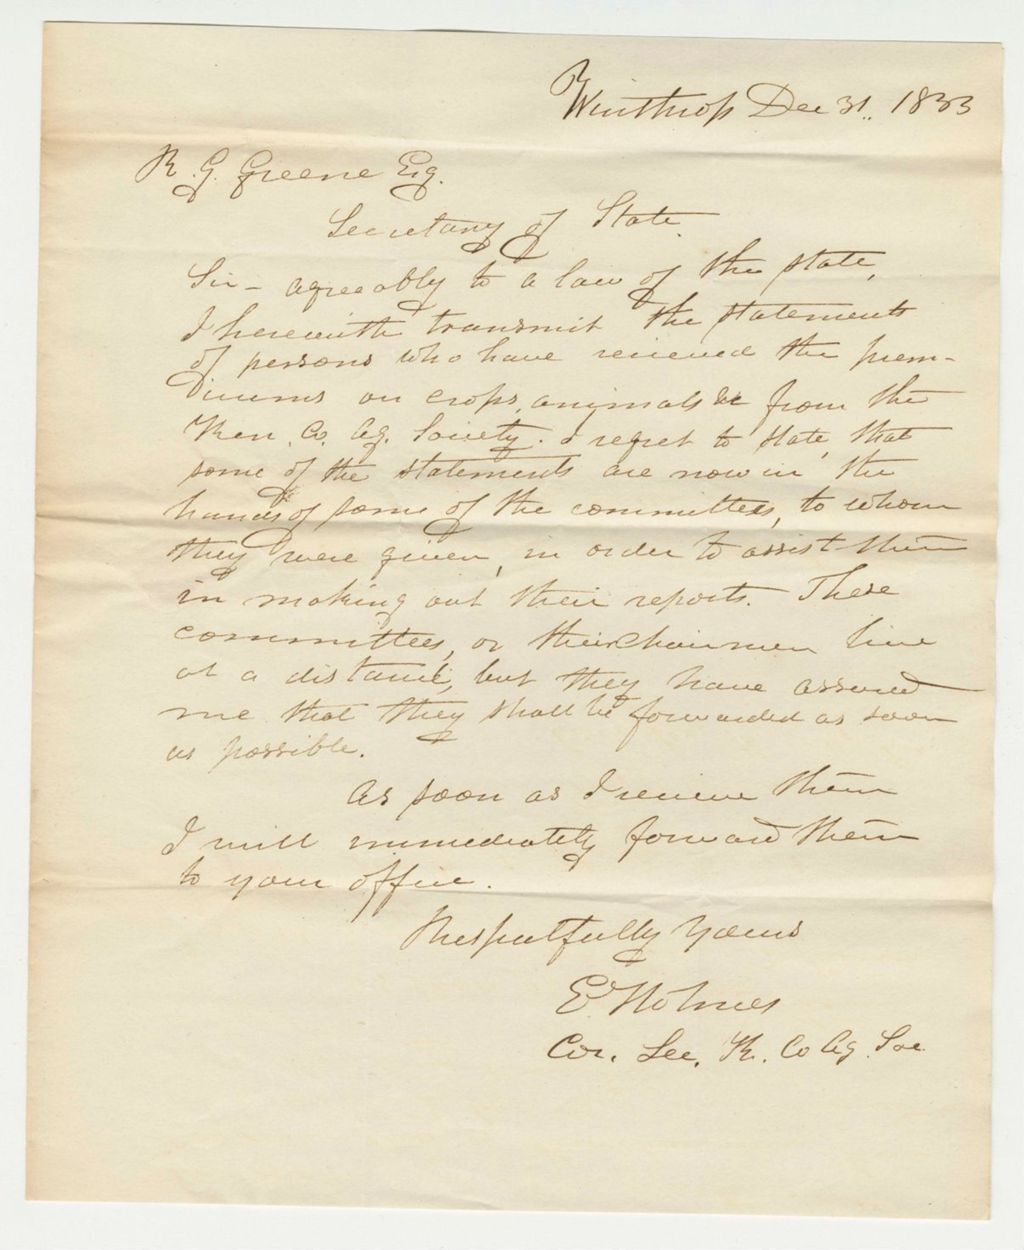 Winthrop Dec 31. 1833
R. G. Greene Esq.
Secretary of State
Sir - agreeably to a law of the state,
I herewith transmit the statements
of persons who have recieved the prem-
iums on crops, animals &c from the
Ken. Co. Ag. Society. I regret to state, that
some of the statements are now in the
hands of some of the committees, to whom
they were given, in order to assist them
in making out their reports. These
committees, or their chairmen live
at a distance, but they have assured
me that they shall be forwarded as soon
as possible.
As soon as I recieve them
I will immediately forward them
to your office.
Respectfully Yours
E Holmes
Cor. Sec. K. Co Ag. Soc